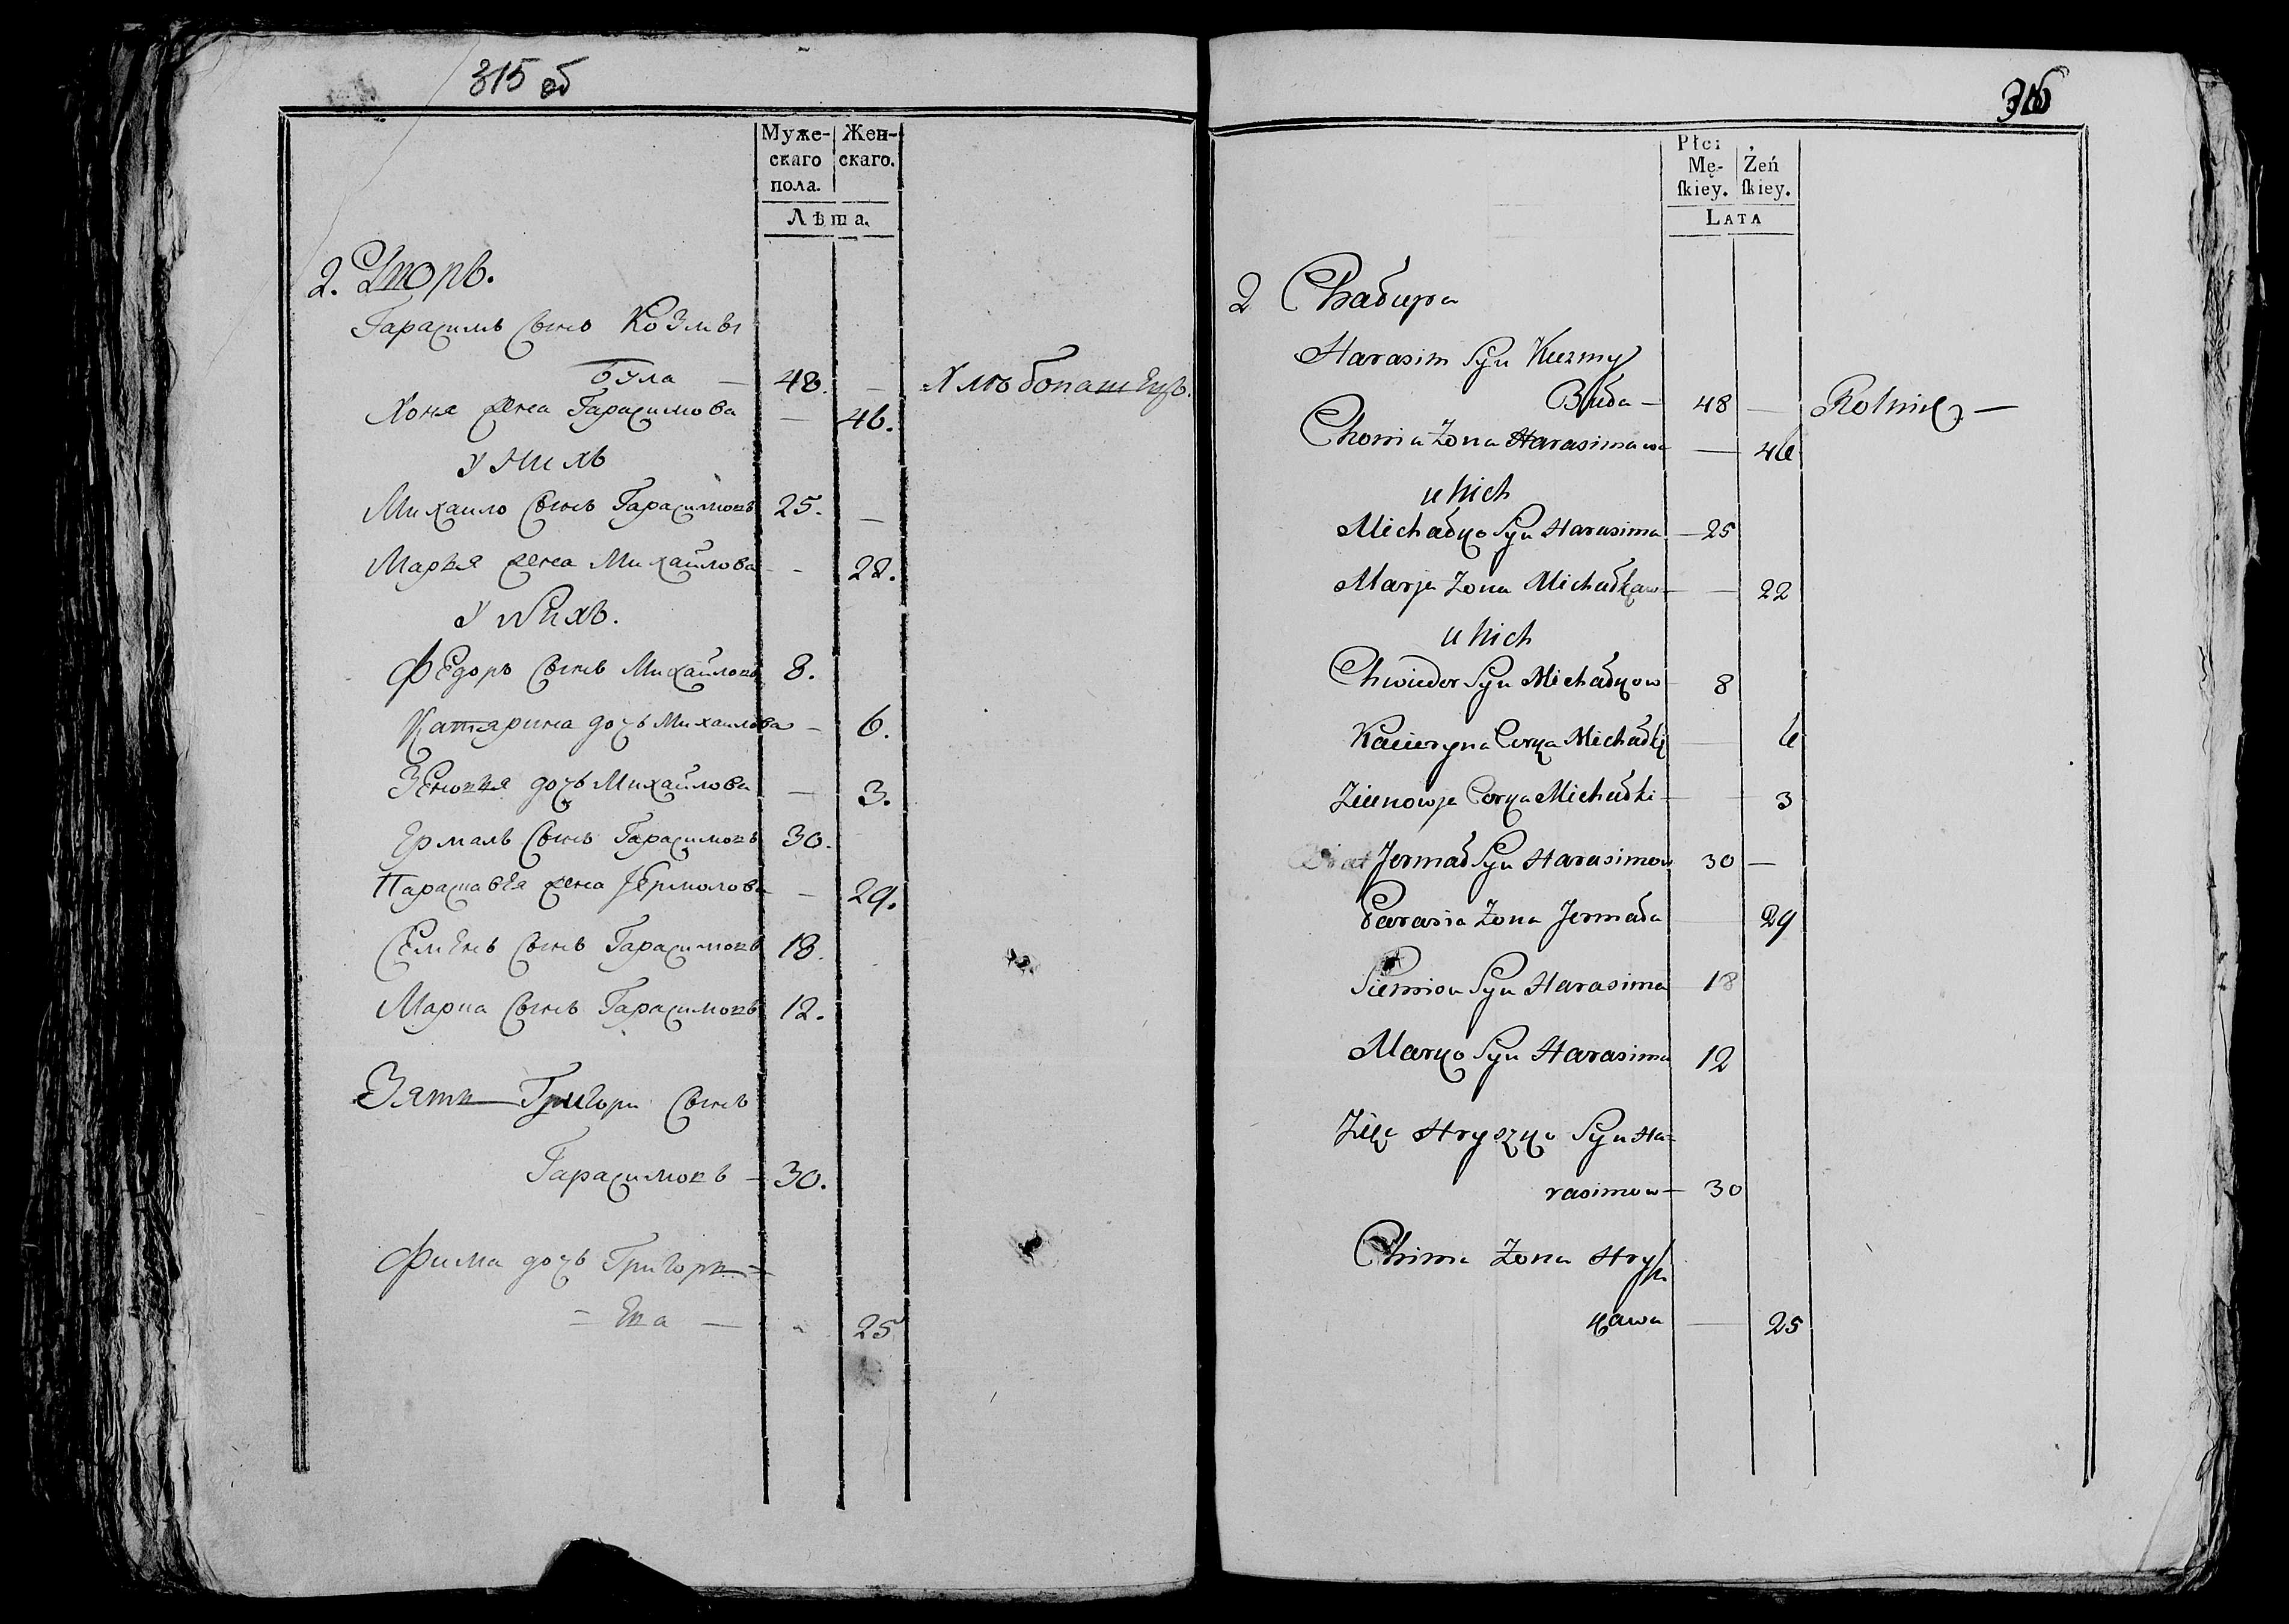 315 об
Муже-
скаго
пола.
Жен-
скаго.
Лѣта.
2. Дворъ.
Гарасимъ сынъ Козмы
Була — 48. — Хлѣбопашецъ.
Хоня жена Гарасимова — 46.
У нихъ
Михаило сынъ Гарасимовъ 25. —
Марья жена Михайлова - - 22.
У нихъ.
Федоръ сынъ Михайловъ 8.
Катярина дочь Михаилова - 6.
Зеновья дочь Михайлова — 3.
Ермалъ сынъ Гарасимовъ 30.
Парасковья жена Ермолова — 29.
Семенъ сынъ Гарасимовъ 18.
Марка сынъ Гарасимовъ 12.
Зять Григори сынъ
Гарасимовъ — 30.
Фима дочь Григорь=
= ева — 25
316
Płci
Mę-
ſkiey.
Żeń
ſkiey.
LATA
2 Chałupa
Harasim Syn Kuzmy
Buła — 48 — Rolnik —
Chonia Zona Harasimawa — 46
u nich
Michałko Syn Harasima — 25
Marja Zona Michałkaw — 22
u nich
Chwiedor Syn Michałkow 8
Kacieryna Corka Michałki — 6
Zienowja Corka Michałki — 3
Brat Jermał Syn Harasimow 30 —
Parasia Zona Jermała 29
Siemion Syn Harasima 18
Marko Syn Harasima 12
Zięć Hryszko Syn Ha=
rasimow — 30
Chima Zona Hrysz
kawa — 25